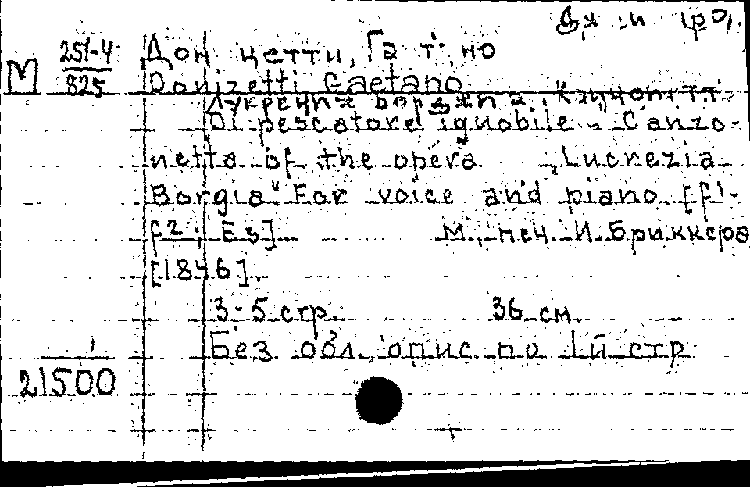 М 251-4
825
Доницетти, Гаэтано
Donizetti Gaetano
Лукреция Борджиа. Канцонетта
Di pescatore ignobile - Canzo-
netta of the opera „Lucrezia
Borgia" For voice and piano [f¹-
f²; Es] М., печ. И. Бриккера
[1846].
3-5 стр. 36 см.
Без обл., опис. по 1й стр
1
21500